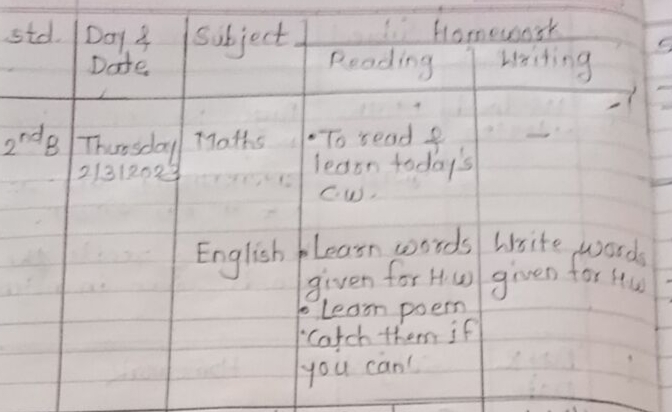 std. Day & Subject Homework
Date Reading Writing
2nd B Thursday Maths • To read & -
2/3/2023 learn today's
C.W.
English • Learn words Write words
given for H.W given for H.W
• Learn poem
'Catch them if
you can'